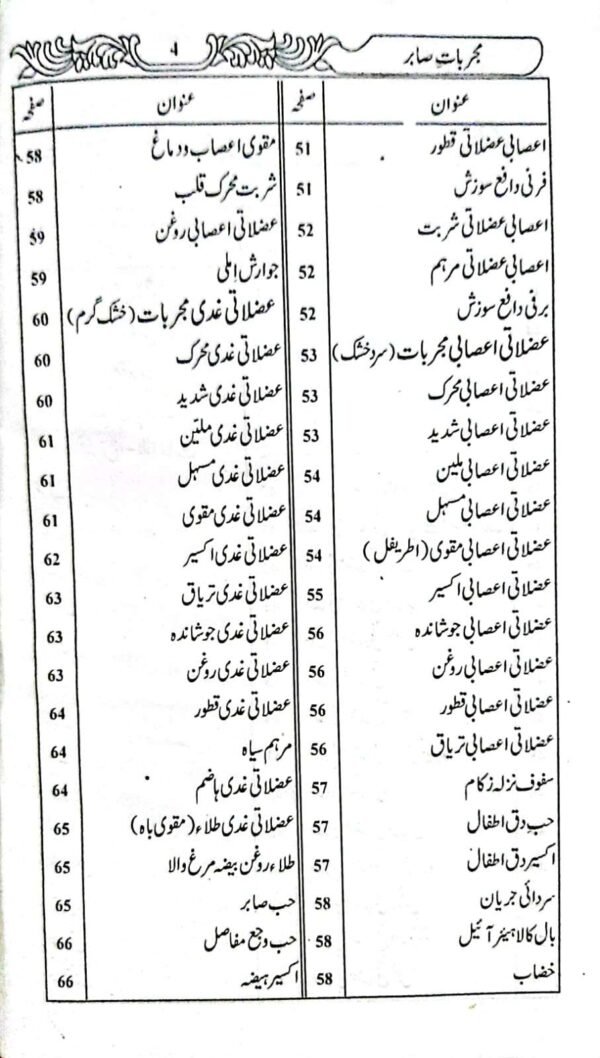 مجربات صابر
4
عنوان صفحہ
اعصابی عضلاتی قطور 51
فرنی دافع سوزش 51
اعصابی عضلاتی شربت 52
اعصابی عضلاتی مرہم 52
برفی دافع سوزش 52
عضلاتی اعصابی مجربات (سرد خشک) 53
عضلاتی اعصابی محرک 53
عضلاتی اعصابی شدید 53
عضلاتی اعصابی ملین 54
عضلاتی اعصابی مسہل 54
عضلاتی اعصابی مقوی (اطریفل) 54
عضلاتی اعصابی اکسیر 55
عضلاتی اعصابی جوشاندہ 56
عضلاتی اعصابی روغن 56
عضلاتی اعصابی قطور 56
عضلاتی اعصابی تریاق 56
سفوف نزلہ زکام 57
حب دق اطفال 57
اکسیر دق اطفال 57
سردائی جریان 58
بال کالا ہیئر آئیل 58
خضاب 58
عنوان صفحہ
مقوی اعصاب و دماغ 58
شربت محرک قلب 58
عضلاتی اعصابی روغن 59
جوارش املی 59
عضلاتی غدی مجربات (خشک گرم) 60
عضلاتی غدی محرک 60
عضلاتی غدی شدید 60
عضلاتی غدی ملین 61
عضلاتی غدی مسہل 61
عضلاتی غدی مقوی 61
عضلاتی غدی اکسیر 62
عضلاتی غدی تریاق 63
عضلاتی غدی جوشاندہ 63
عضلاتی غدی روغن 63
عضلاتی غدی قطور 64
مرہم سیاہ 64
عضلاتی غدی ہاضم 64
عضلاتی غدی طلاء (مقوی باہ) 65
طلاء روغن بیضہ مرغ والا 65
حب صابر 65
حب وجع مفاصل 66
اکسیر ہیضہ 66